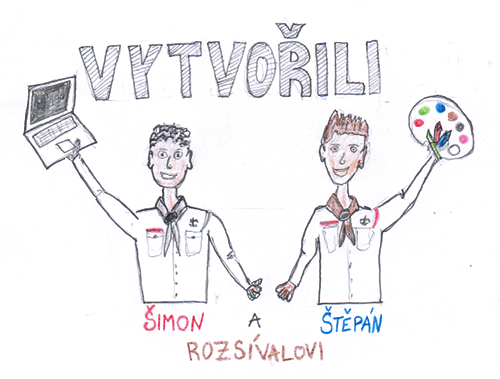 VYTVOŘILI
ŠIMON A ŠTĚPÁN
ROZSÍVALOVI